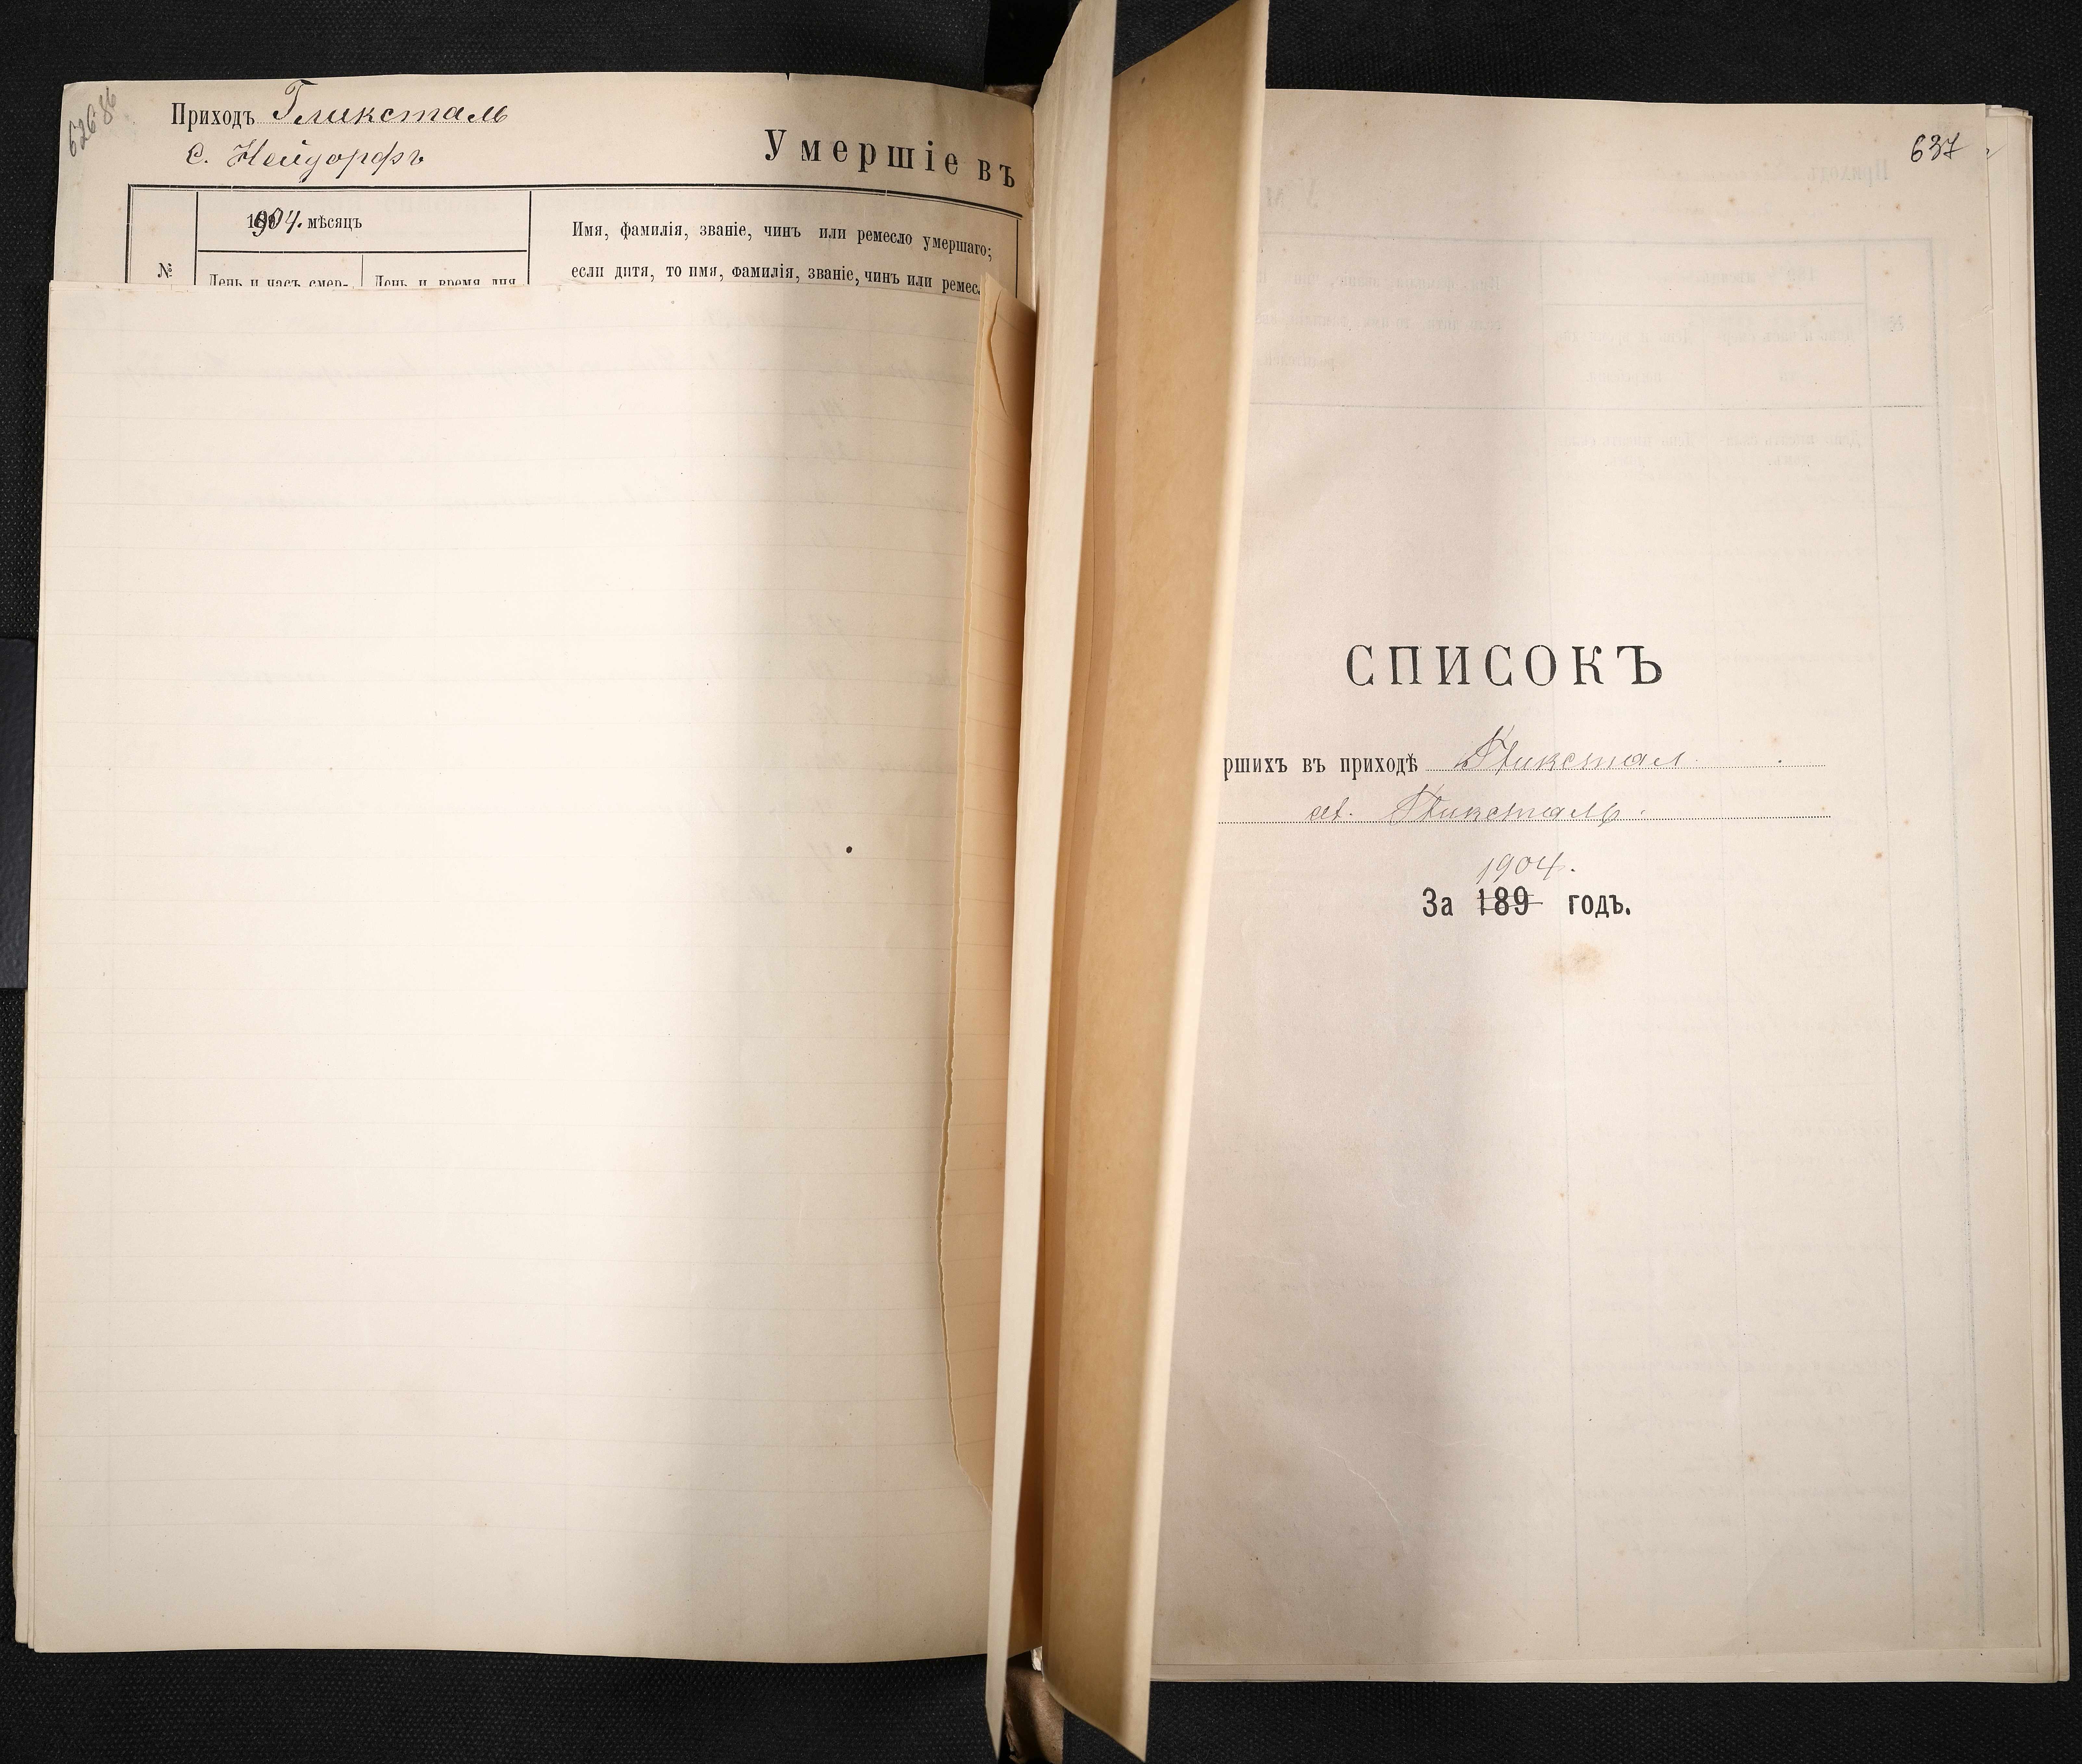 Приходъ Гликсталь
с. Нейдорфъ
Умершіе въ
1904. мѣсяцъ
№
День и часъ смер-
День и время дня
Имя, фамилія, званіе, чинъ или ремесло умершаго;
если дитя, то имя, фамилія, званіе, чинъ или ремес
637
СПИСОКЪ
ршихъ въ приходѣ Гликстал
Гликсталь.
1904.
За 189 годъ.